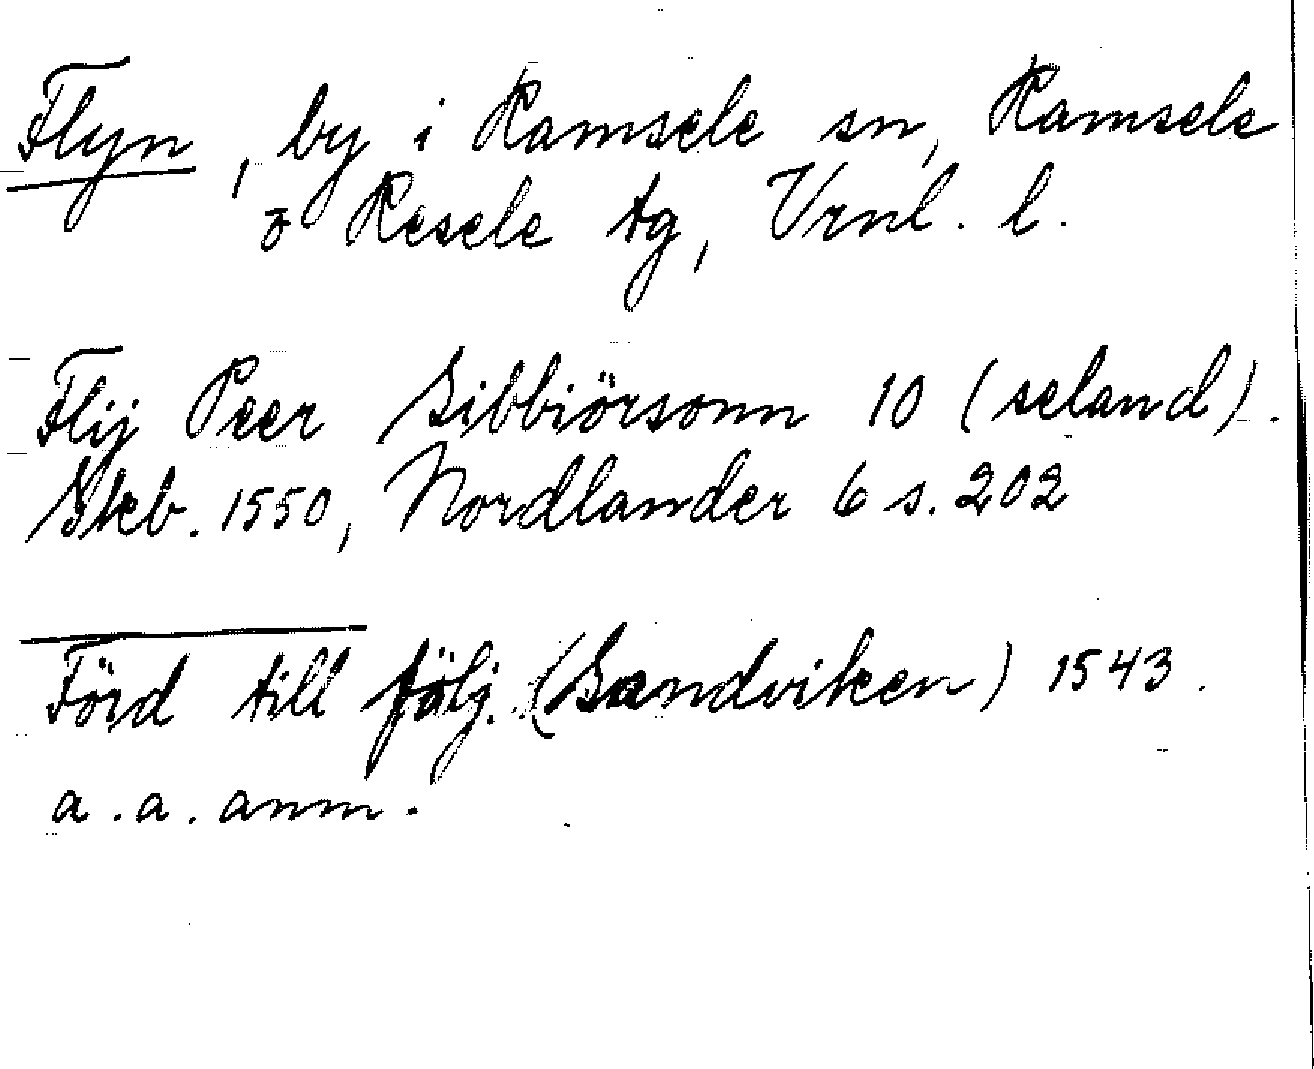 Flyn, by i Ramsele sn, Ramsele
o Resele tg, Vrnl. l.
Flij Peer Sibbiörsonn 10 (seland).
Skb. 1550, Nordlander 6 s. 202
Förd till följ. (Sandviken) 1543.
a. a. anm.